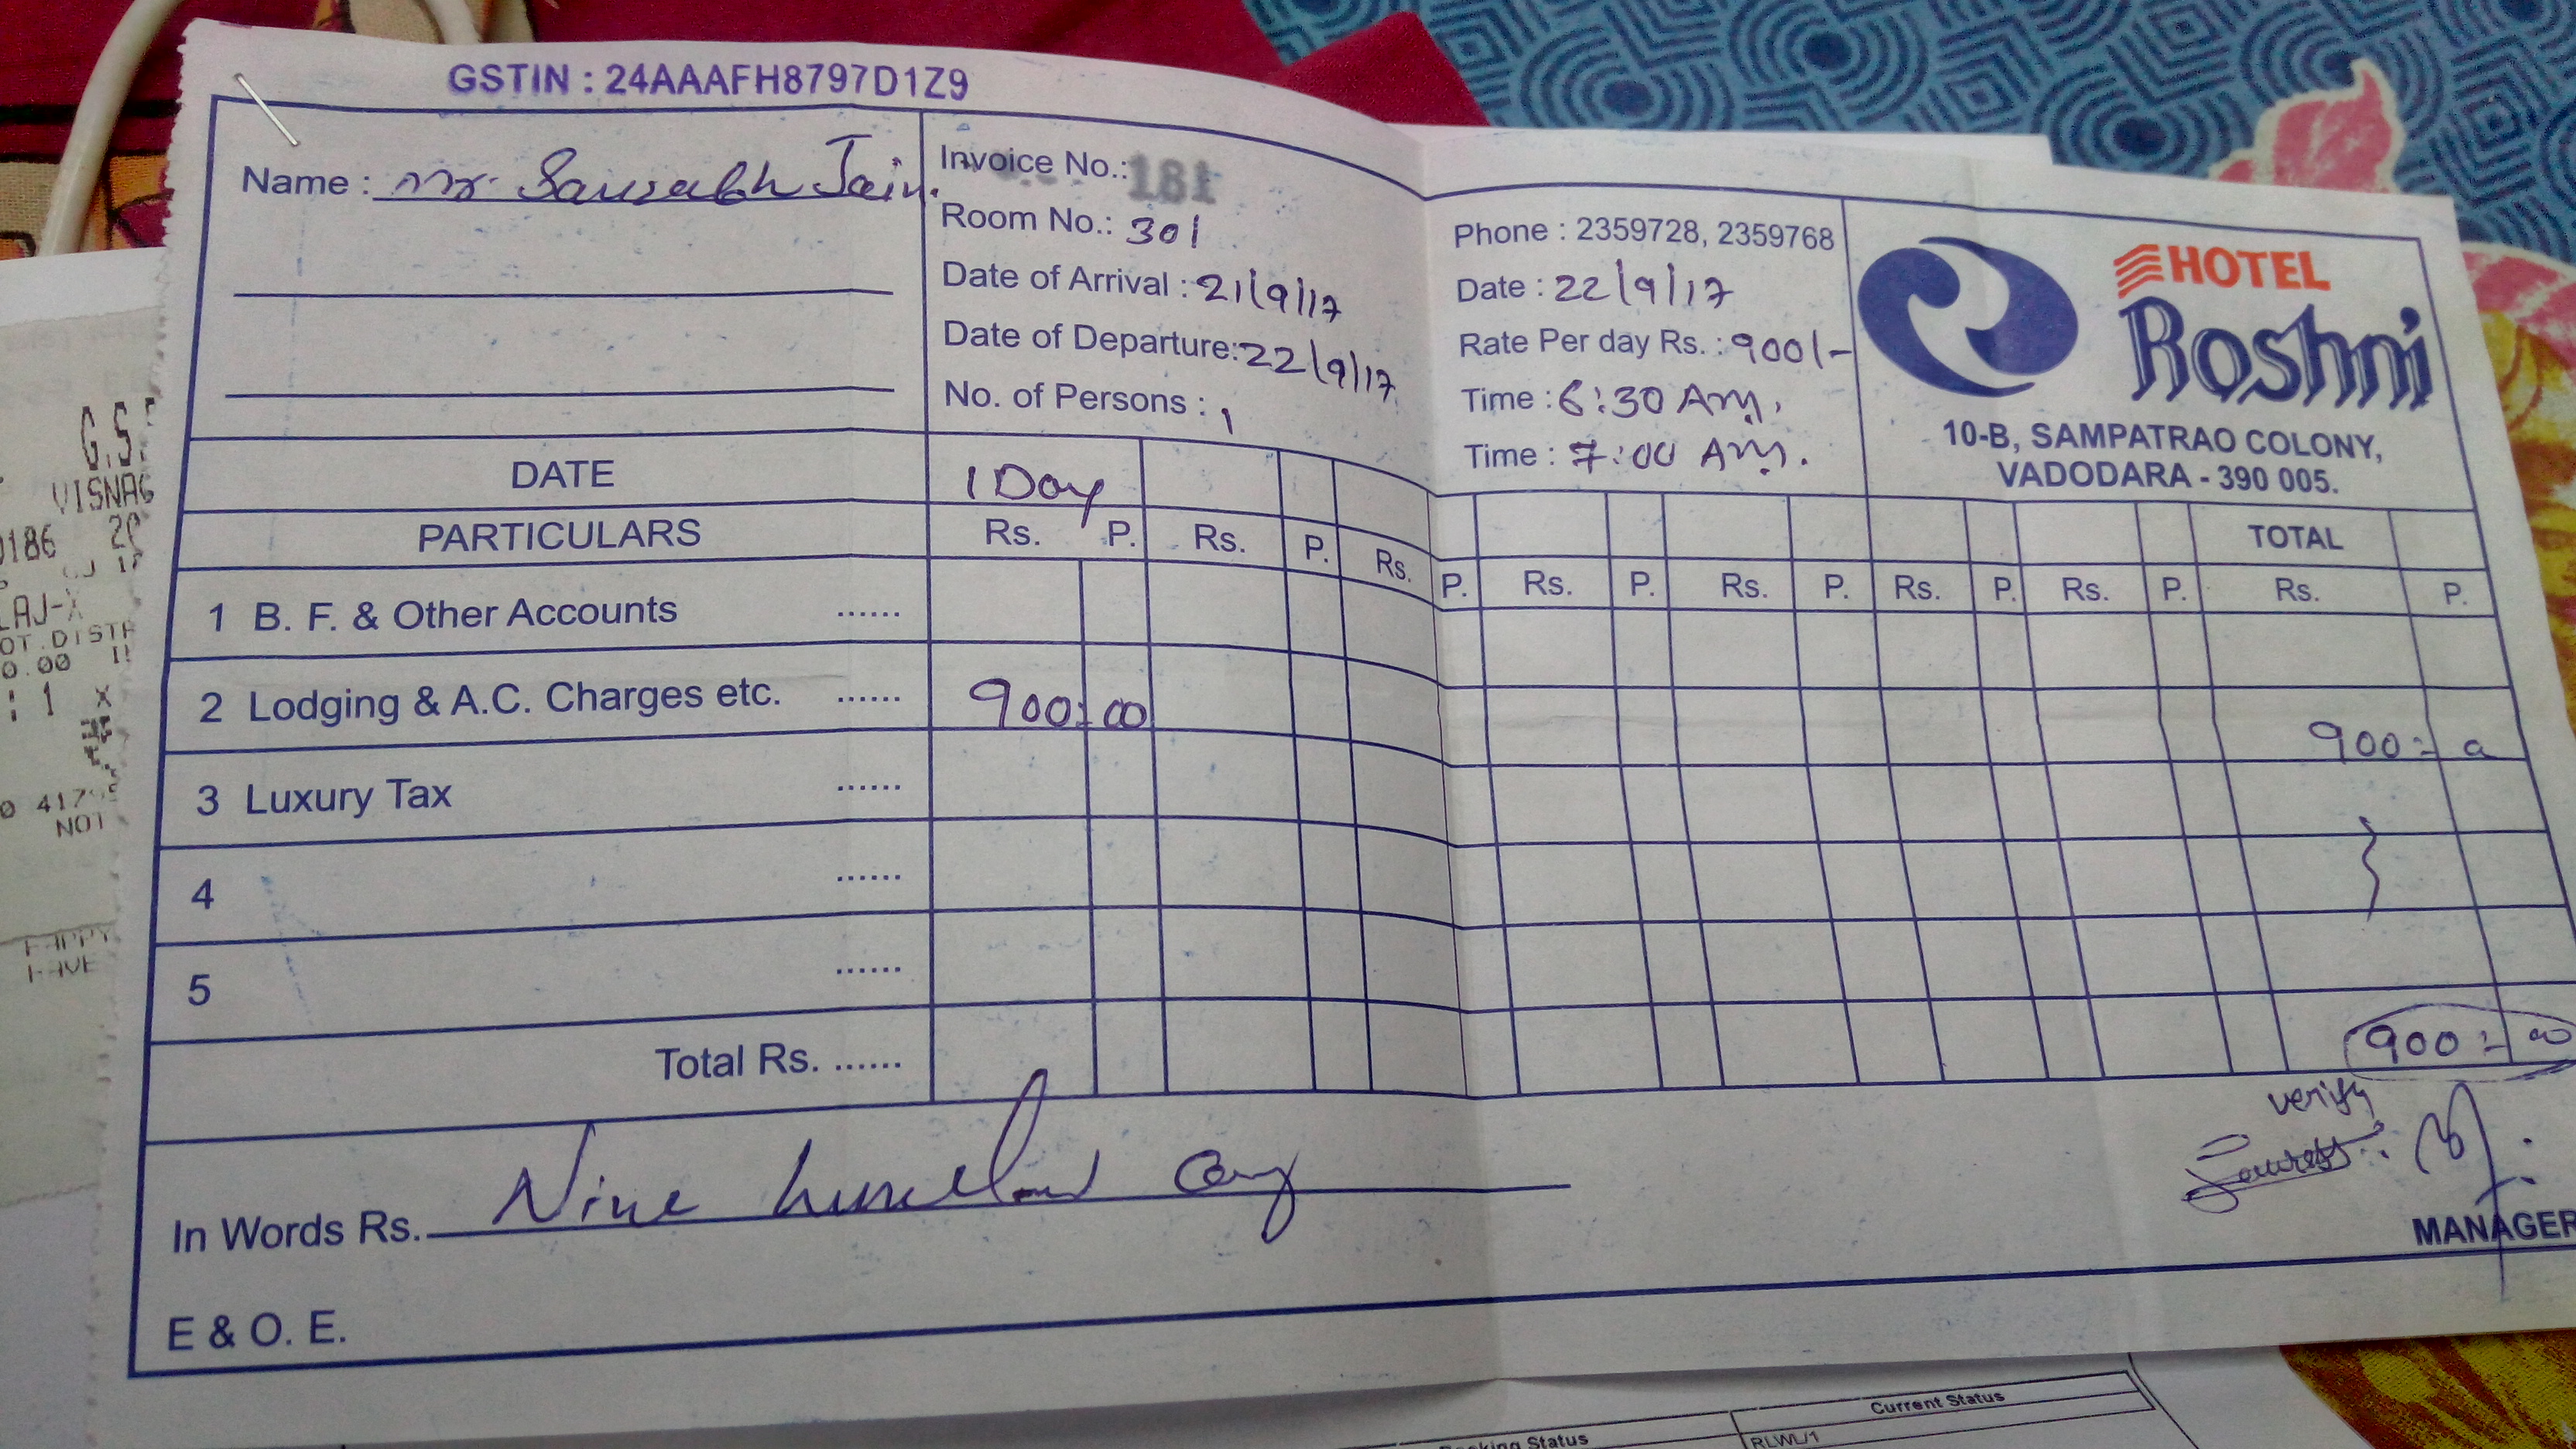 GSTIN : 24AAAFH8797D1Z9
Name : Mr. Saurabh Jain.
Invoice No.: 181
Room No.: 301
Date of Arrival : 21/9/17
Date of Departure: 22/9/17
No. of Persons : 1
Phone : 2359728, 2359768
Date : 22/9/17
Rate Per day Rs. : 900/-
Time : 6:30 AM.
Time : 7:00 AM.
HOTEL
Roshni
10-B, SAMPATRAO COLONY,
VADODARA - 390 005.
DATE 1 Day TOTAL
PARTICULARS Rs. P. Rs. P. Rs. P. Rs. P. Rs. P. Rs. P. Rs. P. Rs. P.
1 B. F. & Other Accounts ......
2 Lodging & A.C. Charges etc. ...... 900=00 900=
3 Luxury Tax ......
4 ......
5 ......
Total Rs. ...... 900=00
In Words Rs. Nine hundred only
verify
MANAGER
E & O. E.
VISNAG
0186
LAJ-X
0.00
: 1 X
NOT
HAVE
Current Status
king Status
RLWL/1